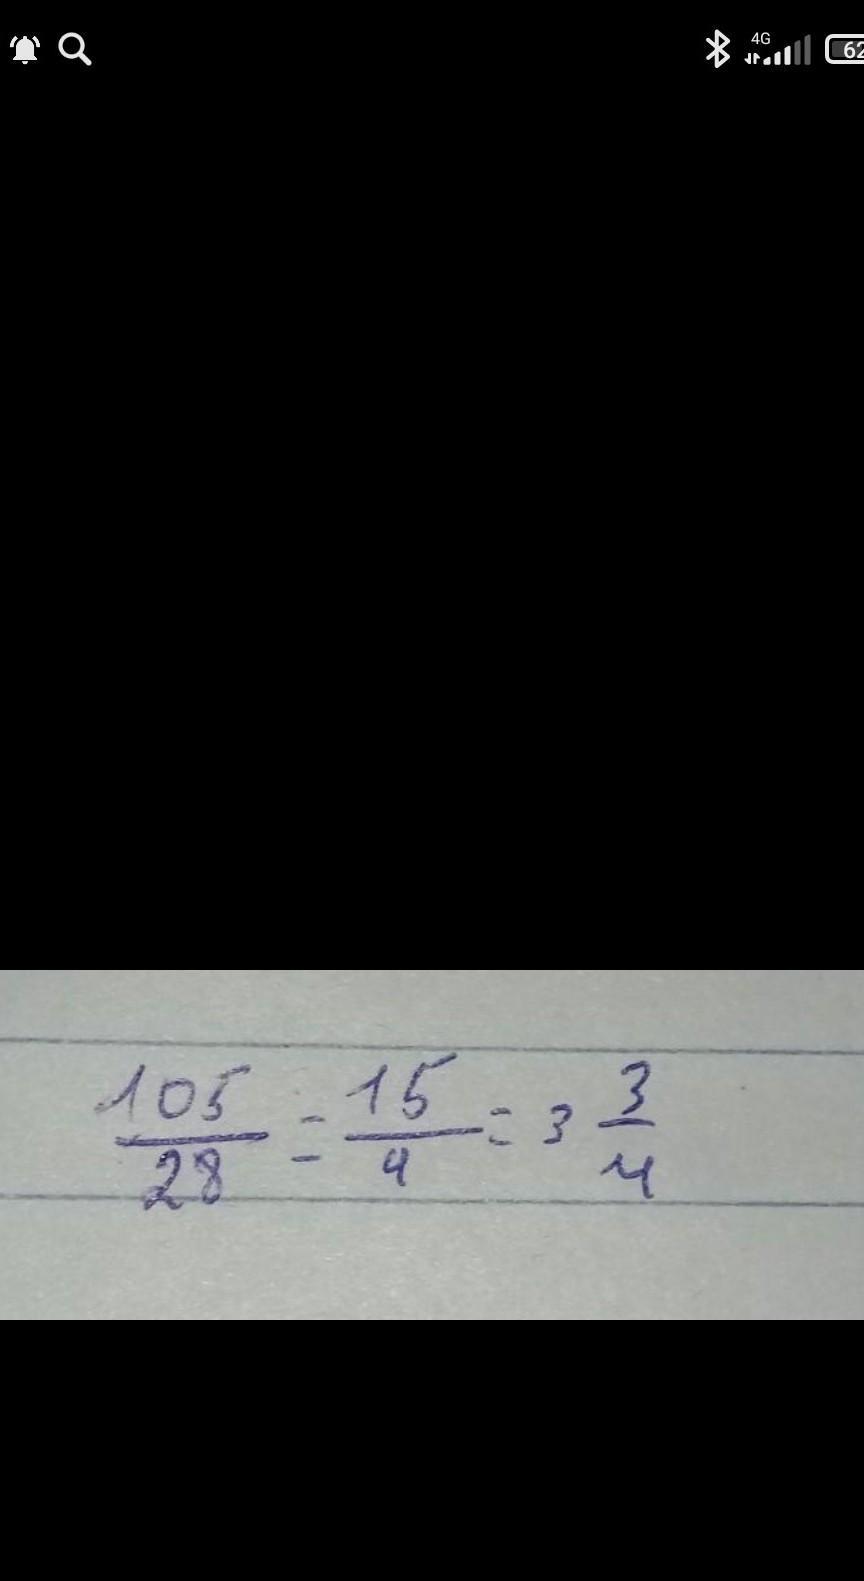 4G 62
105/28 = 15/4 = 3 3/4